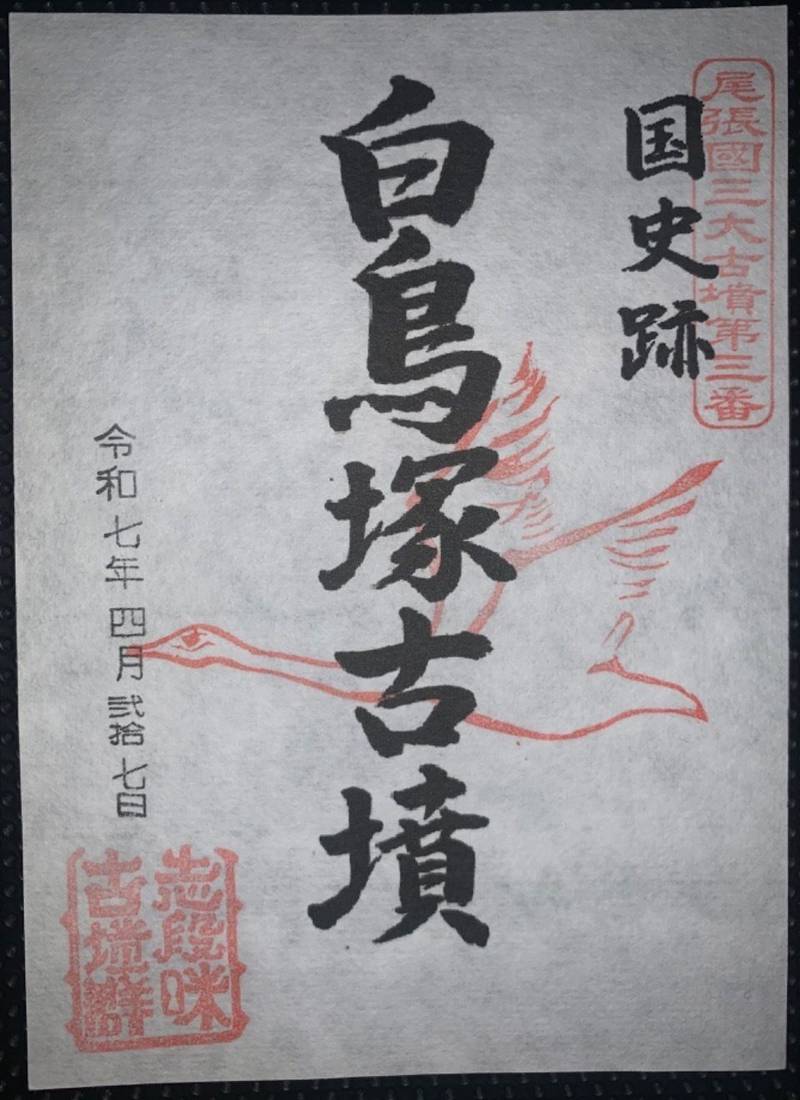 尾張國三大古墳第三番
国史跡
白鳥塚古墳
令和七年四月弐拾七日
志段味
古墳群